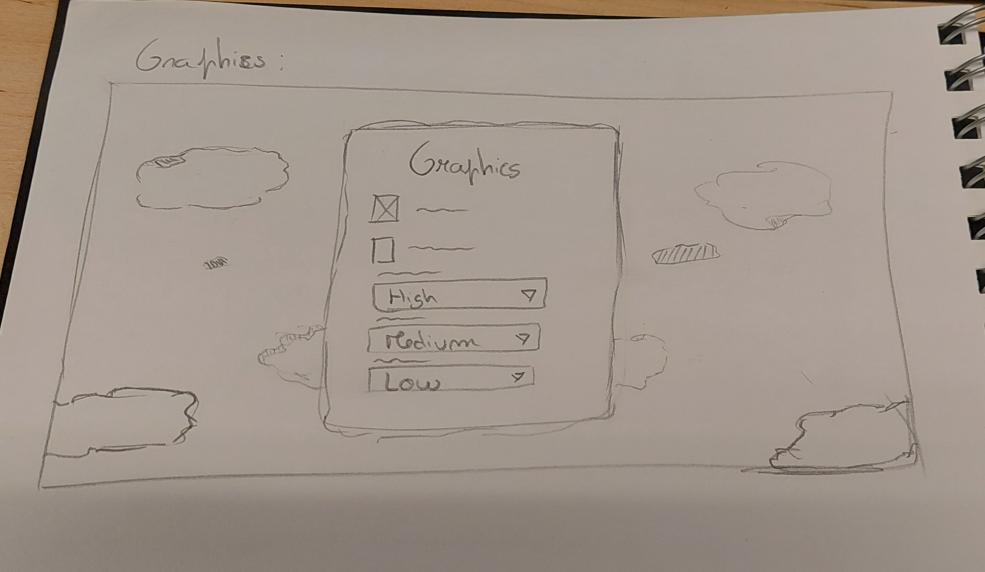 Graphics:
Graphics
High
Medium
Low